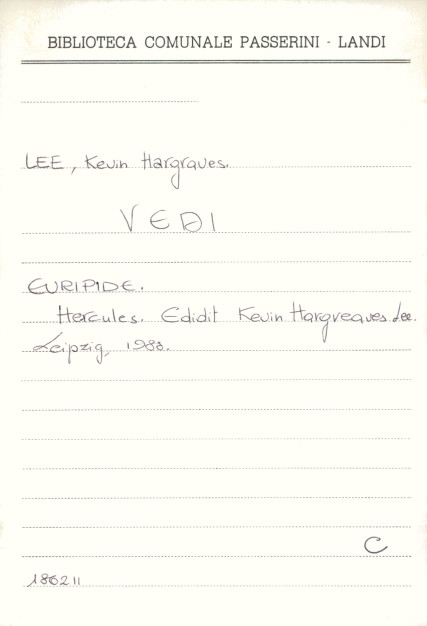 BIBLIOTECA COMUNALE PASSERINI - LANDI
LEE, Kevin Hargraves.
VEDI
EURIPIDE.
Hercules. Edidit Kevin Hargreaves Lee.
Leipzig, 1983.
C
186211